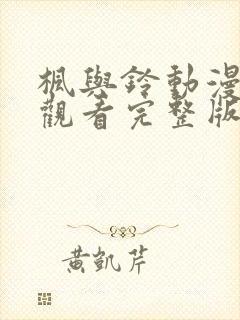 楓與鈴動漫
觀看完整版
黃凱芹